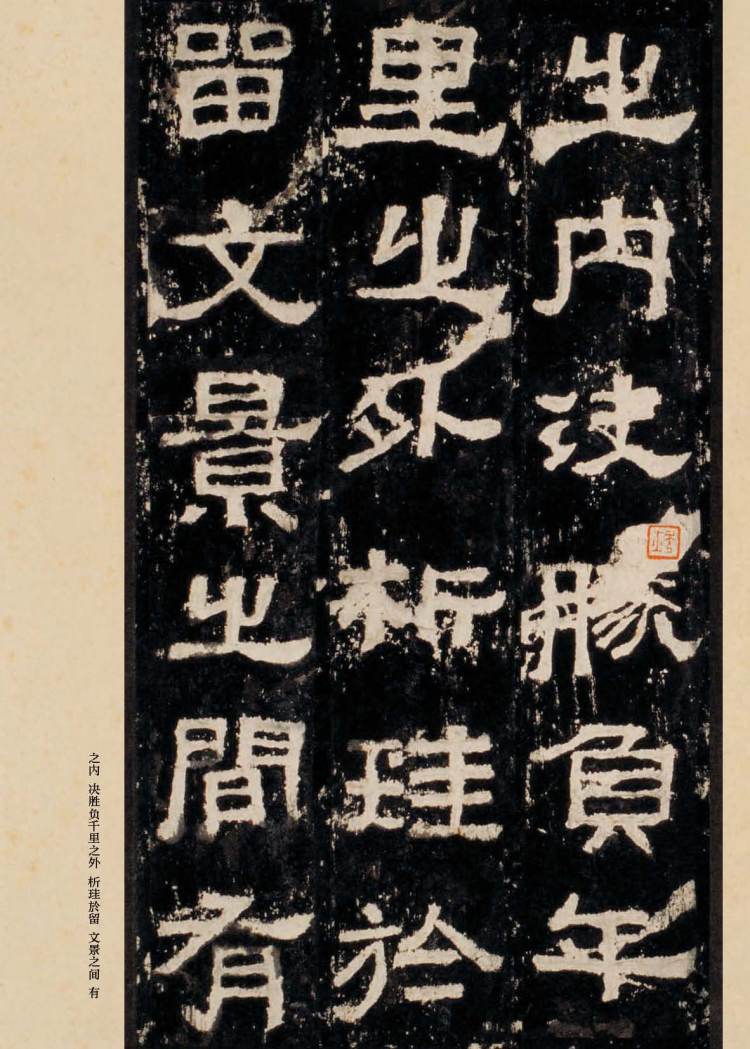 之内決勝負年
里之外析珪於
留文景之間有
之内 决胜负千里之外 析珪於留 文景之间 有